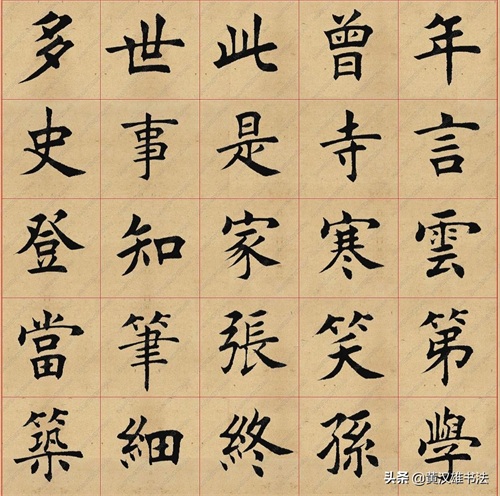 多世此曾年
史事是寺言
登知家寒雲
當筆張笑第
築細終孫學
头条 @黄汉雄书法